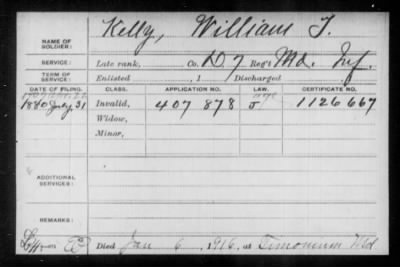 NAME OF SOLDIER: Kelly, William T.
SERVICE: Late rank, Co. D 7 Reg't Md. Inf.
TERM OF SERVICE: Enlisted , 1 / Discharged
DATE OF FILING. CLASS. APPLICATION NO. LAW. CERTIFICATE NO.
1880 July 31 Invalid, 407 878 1126 667
Widow,
Minor,
ADDITIONAL SERVICES:
REMARKS:
Died Jan 6, 1916, at Timonium Md